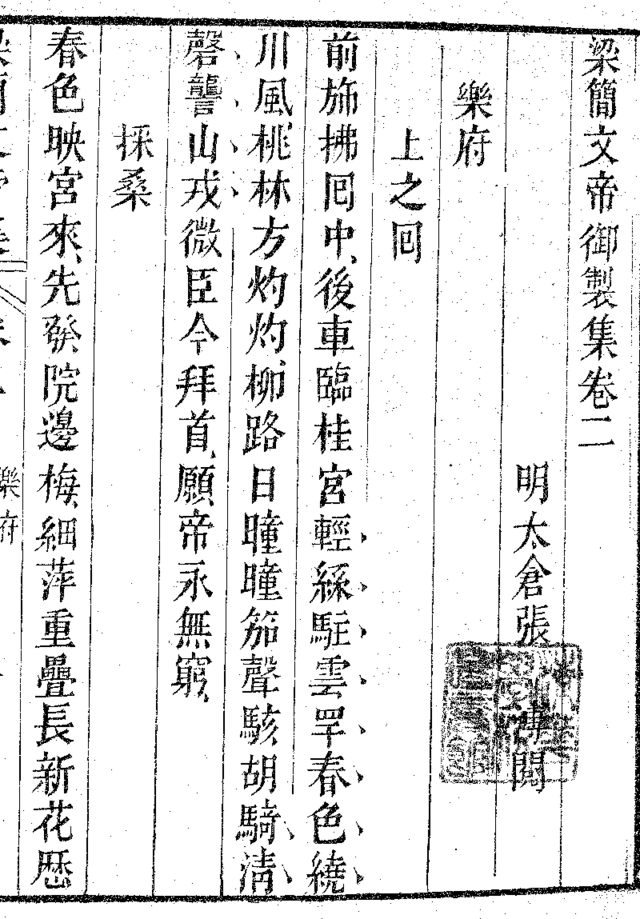 梁簡文帝御製集卷二
明太倉張溥閱
樂府
上之囘
前斾拂囘中、後車臨桂宮輕絲駐雲罕春色繞
川風桃林方灼灼柳路日曈曈笳聲駭胡騎清
磬讋山戎微臣今拜首、願帝永無窮、
採桑
春色映宮來、先發院邊梅、細萍重疊長新花歴